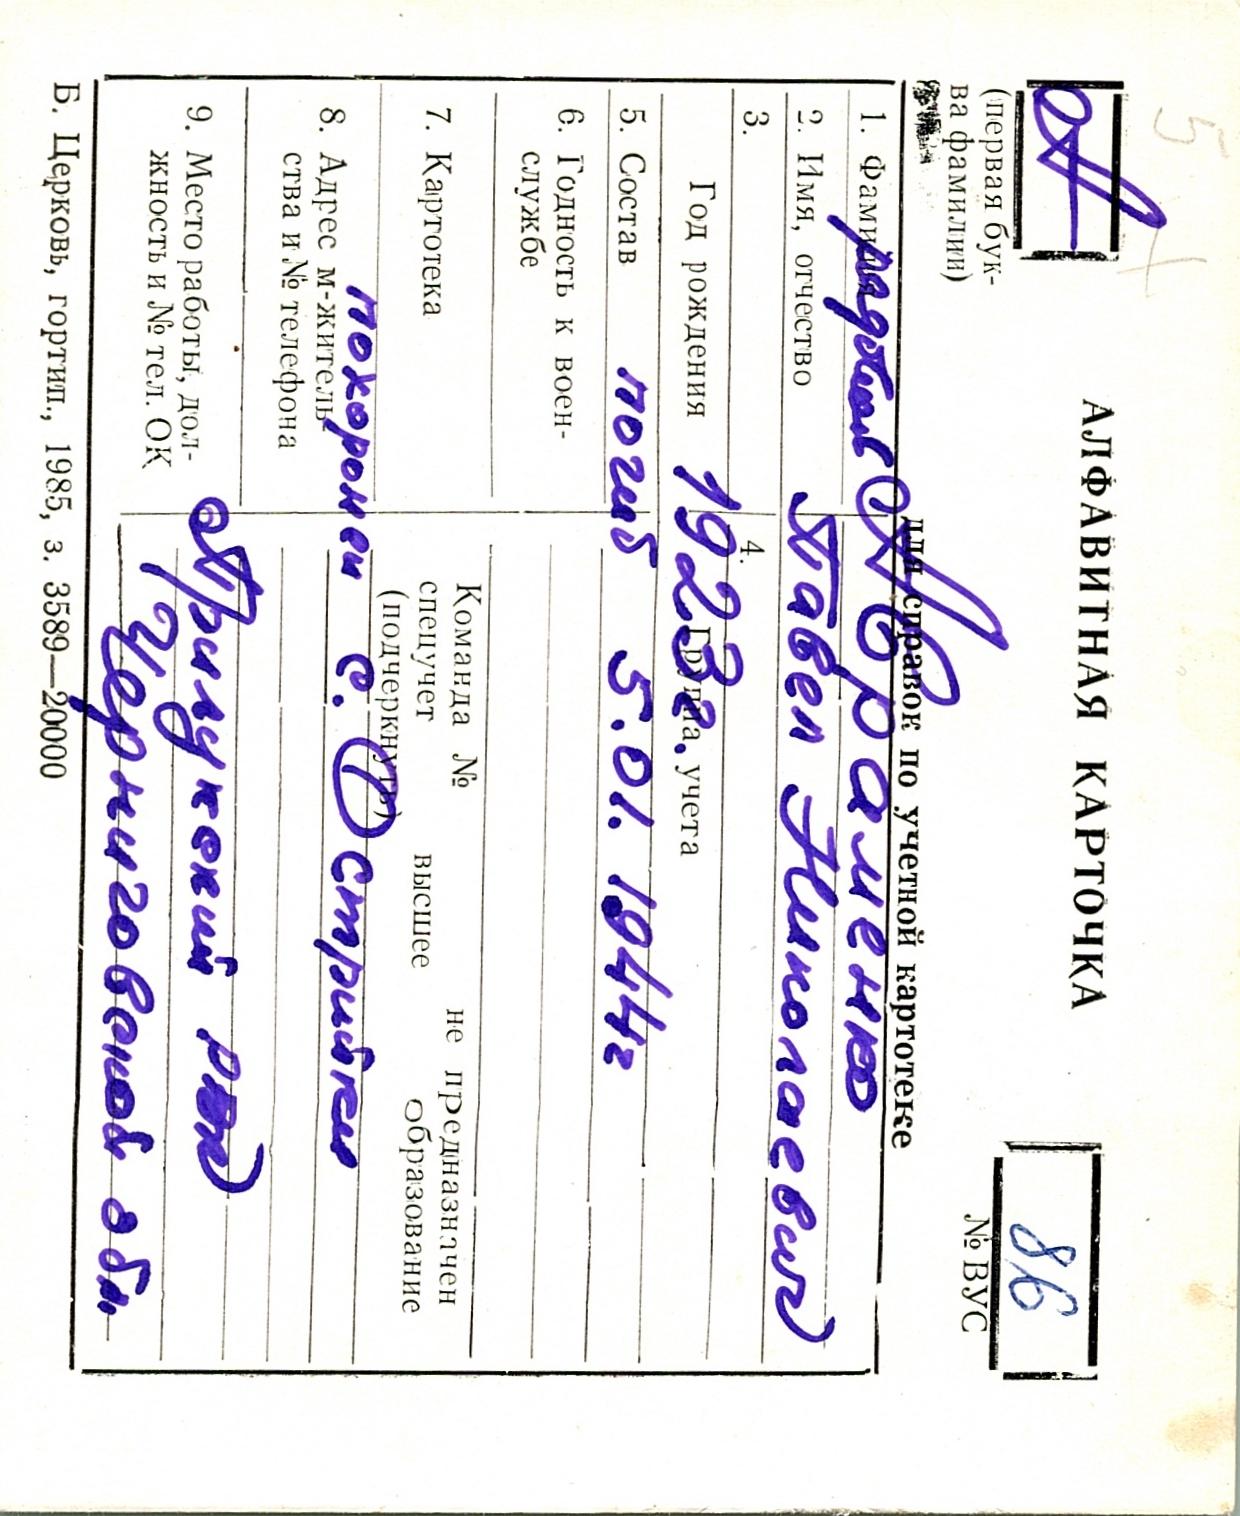 А
(первая бук-
ва фамилии)
АЛФАВИТНАЯ КАРТОЧКА
для справок по учетной картотеке
86
№ ВУС
1. Фамилия рядовой Авраменко
2. Имя, отчество Павел Николаевич
3. Год рождения 1923г.
4. Группа учета
5. Состав погиб 5.01.1944г
6. Годность к воен-
службе
7. Картотека
Команда № не предназначен
спецучет высшее образование
(подчеркнуть)
8. Адрес м-житель-
ства и № телефона
похоронен с.
9. Место работы, дол-
жность и № тел. ОК
Прилукский р-н
Черниговской обл.
Б. Церковь, гортип., 1985, з. 3589—20000